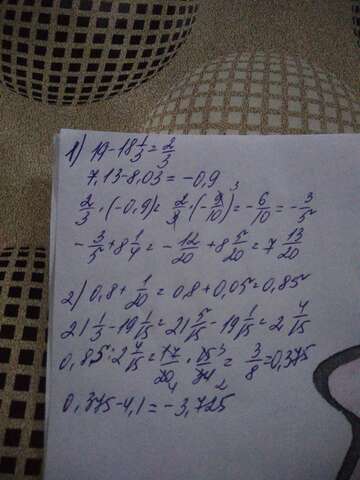 1) 19-18 1/3 = 2/3
7,13-8,03 = -0,9
2/3 · (-0,9) = 2/3 · (-9/10)³ = -6/10 = -3/5
-3/5 + 8 1/4 = -12/20 + 8 5/20 = 7 13/20
2) 0,8 + 1/20 = 0,8 + 0,05 = 0,85
21 1/3 - 19 1/15 = 21 5/15 - 19 1/15 = 2 4/15
0,85 : 2 4/15 = 17/20 4 · 15 3/34 2 = 3/8 = 0,375
0,375-4,1 = -3,725